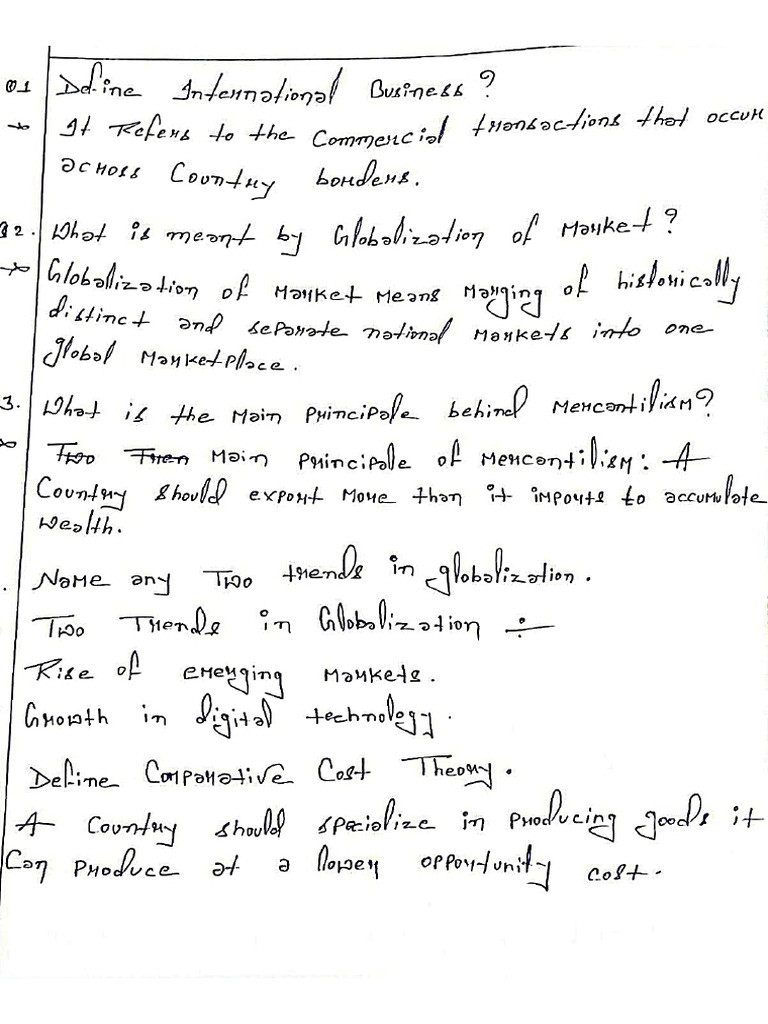 Q1 Define International Business?
→ It Refers to the Commercial transactions that occur
across Country borders.
Q2. What is meant by Globalization of Market?
→ Globalization of Market Means Merging of historically
distinct and separate national Markets into one
global Marketplace.
3. What is the Main Principale behind Mercantilism?
→ Two Main Principale of Mercantilism: A
Country should export More than it imports to accumulate
Wealth.
. Name any Two trends in globalization.
Two Trends in Globalization ÷
Rise of emerging Markets.
Growth in digital technology.
Define Comparative Cost Theory.
A Country should specialize in Producing goods it
Can Produce at a lower opportunity cost.